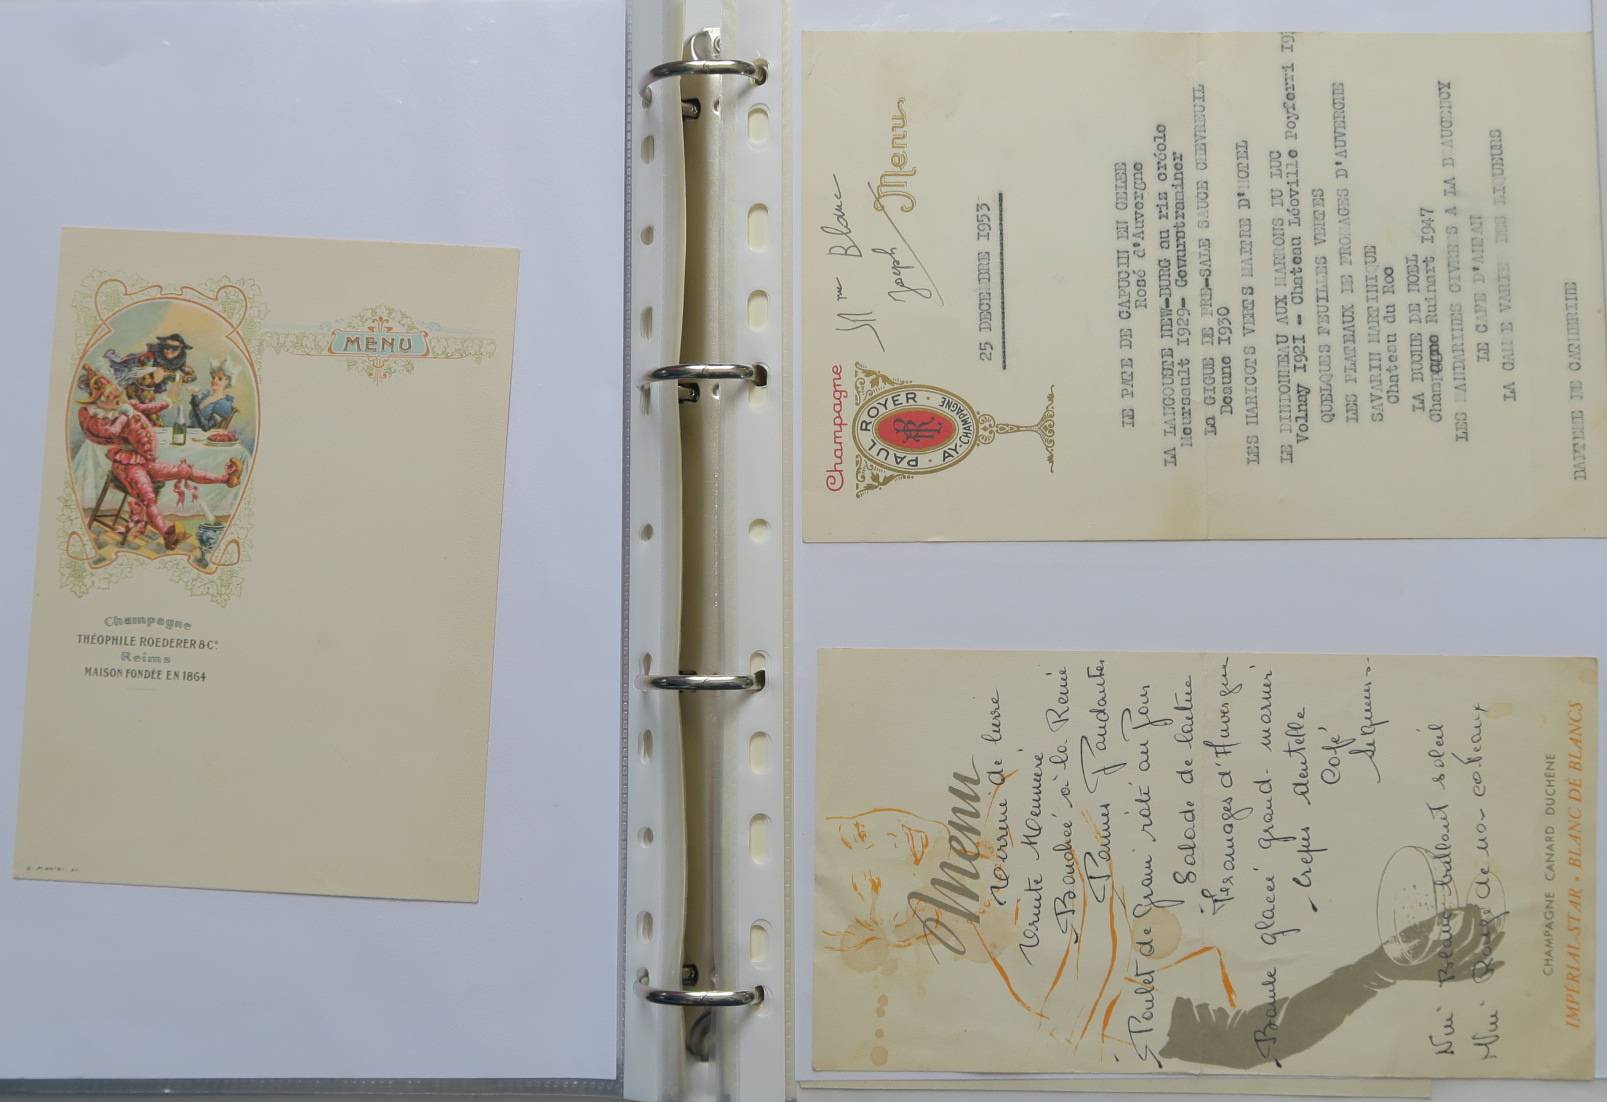 MENU
Champagne
THÉOPHILE ROEDERER & Co.
Reims
MAISON FONDÉE EN 1864
Champagne
PAUL ROYER
AY-CHAMPAGNE
Mme Blanc
Joseph
Menu
25 DECEMBRE 1953
LE PATE DE CAPUCIN EN GELEE
Rosé d'Auvergne
LA LANGOUSTE NEW-BURG au riz créole
Meursault 1929- Gewurstraminer
La GIGUE DE PRE-SALE SAUCE CHEVREUIL
Beaune 1930
LES HARICOTS VERTS MAITRE D'HOTEL
LE DINDONNEAU AUX MARRONS DU LUC
Volnay 1921 - Chateau Léoville Poyferri
QUELQUES FEUILLES VERTES
LES PLATEAUX DE FROMAGES D'AUVERGNE
SAVARIN MARTINIQUE
Chateau du Roc
LA BUCHE DE NOEL
Champagne Ruinart 1947
LES MANDARINES GIVREES A LA BEAUGENCY
LE CAFE D'
LA GAMME VARIEE DES LIQUEURS
BAPTEME DE CATHERINE
Menu
Terrine de lièvre
Truite Meunière
Bouchée à la Reine
Pommes Fondantes
Poulet de Grain rôti au four
Salade de laitue
Fromages d'Auvergne
Bombe glacée grand-marnier
Crêpes dentelle
Café
Liqueurs
Vin Blanc brillant soleil
Vin Rouge de nos coteaux
CHAMPAGNE CANARD DUCHÊNE
IMPÉRIAL-STAR · BLANC DE BLANCS